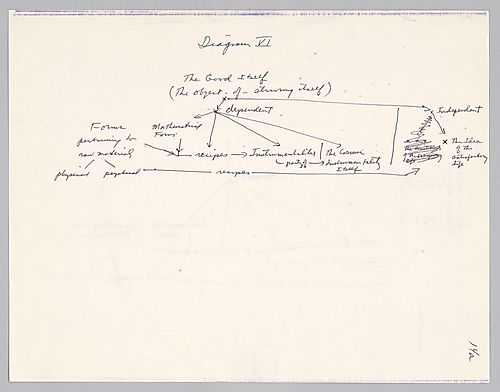 Diagram VI
The Good itself
(The object - of - striving itself)
dependent
Independent
Forms
pertaining to
raw materials
physical psychical
Mathematical
Forms
recipes
Instrumentalities
parts of
The Cosmic
Instrumentality
itself
recipes
x The Idea
of the
Satisfactory
life
14a